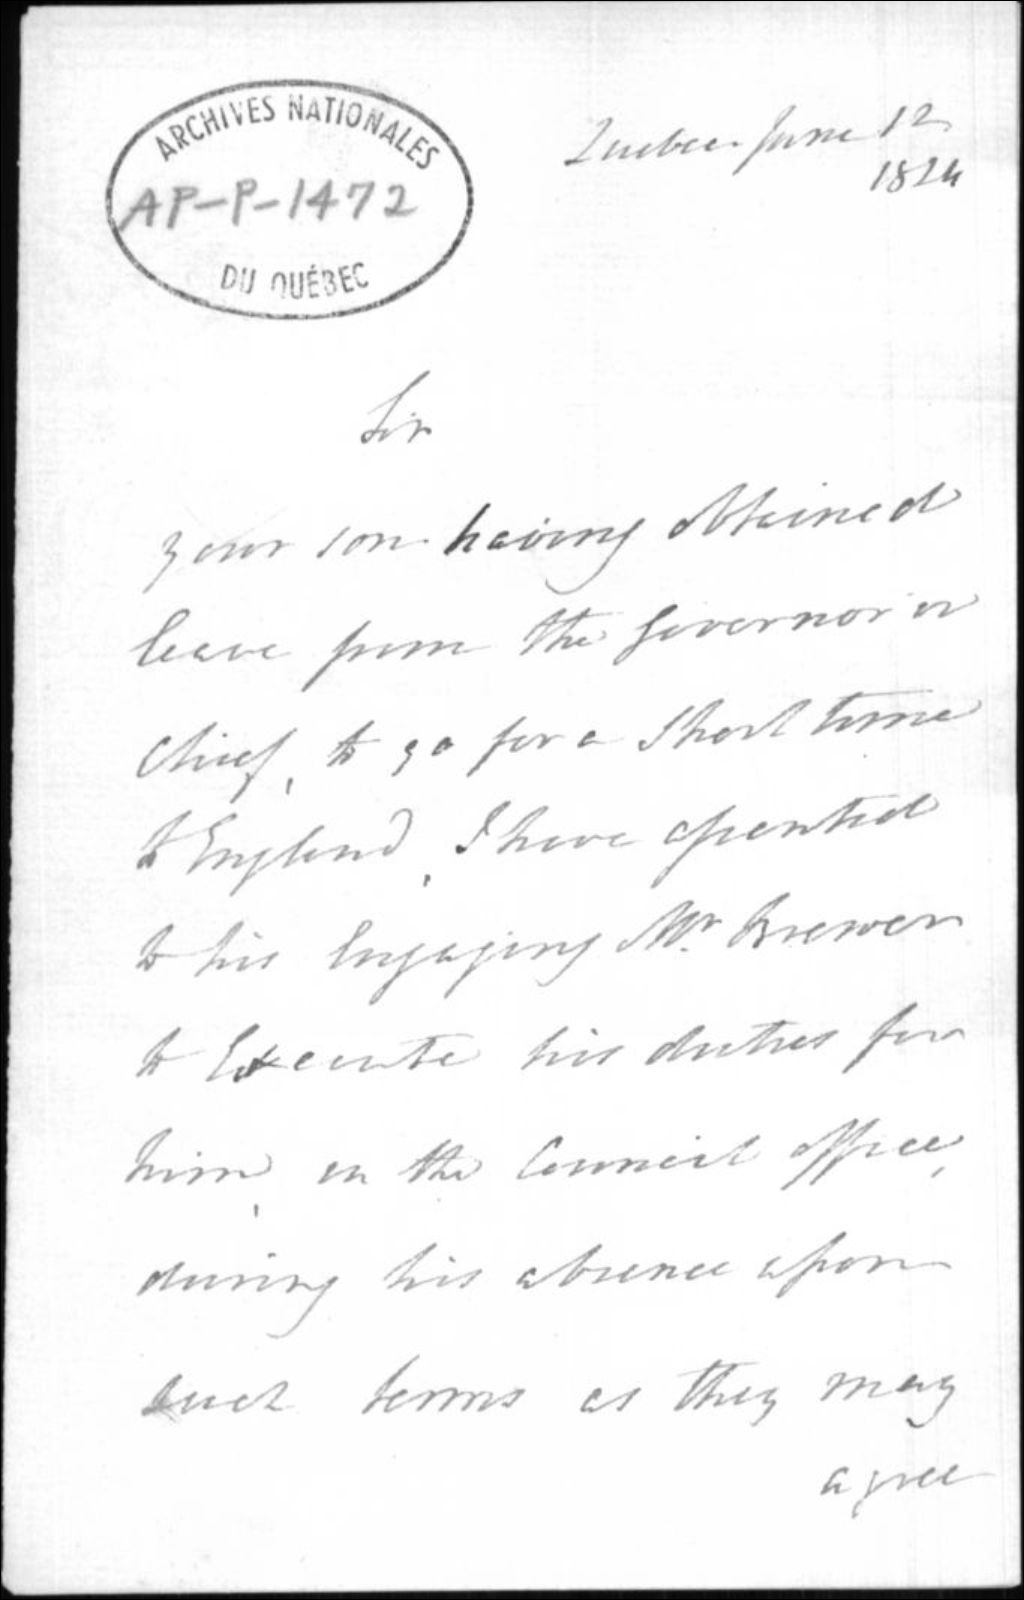 ARCHIVES NATIONALES
AP-P-1472
DU QUÉBEC
Quebec June 12
1824
Sir
your son having obtained
leave from the Governor in
Chief, to go for a short time
to England, I have assented
to his Engaging Mr. Brewer
to Execute his duties for
him, in the Council office,
during his absence upon
such terms as they may
agree